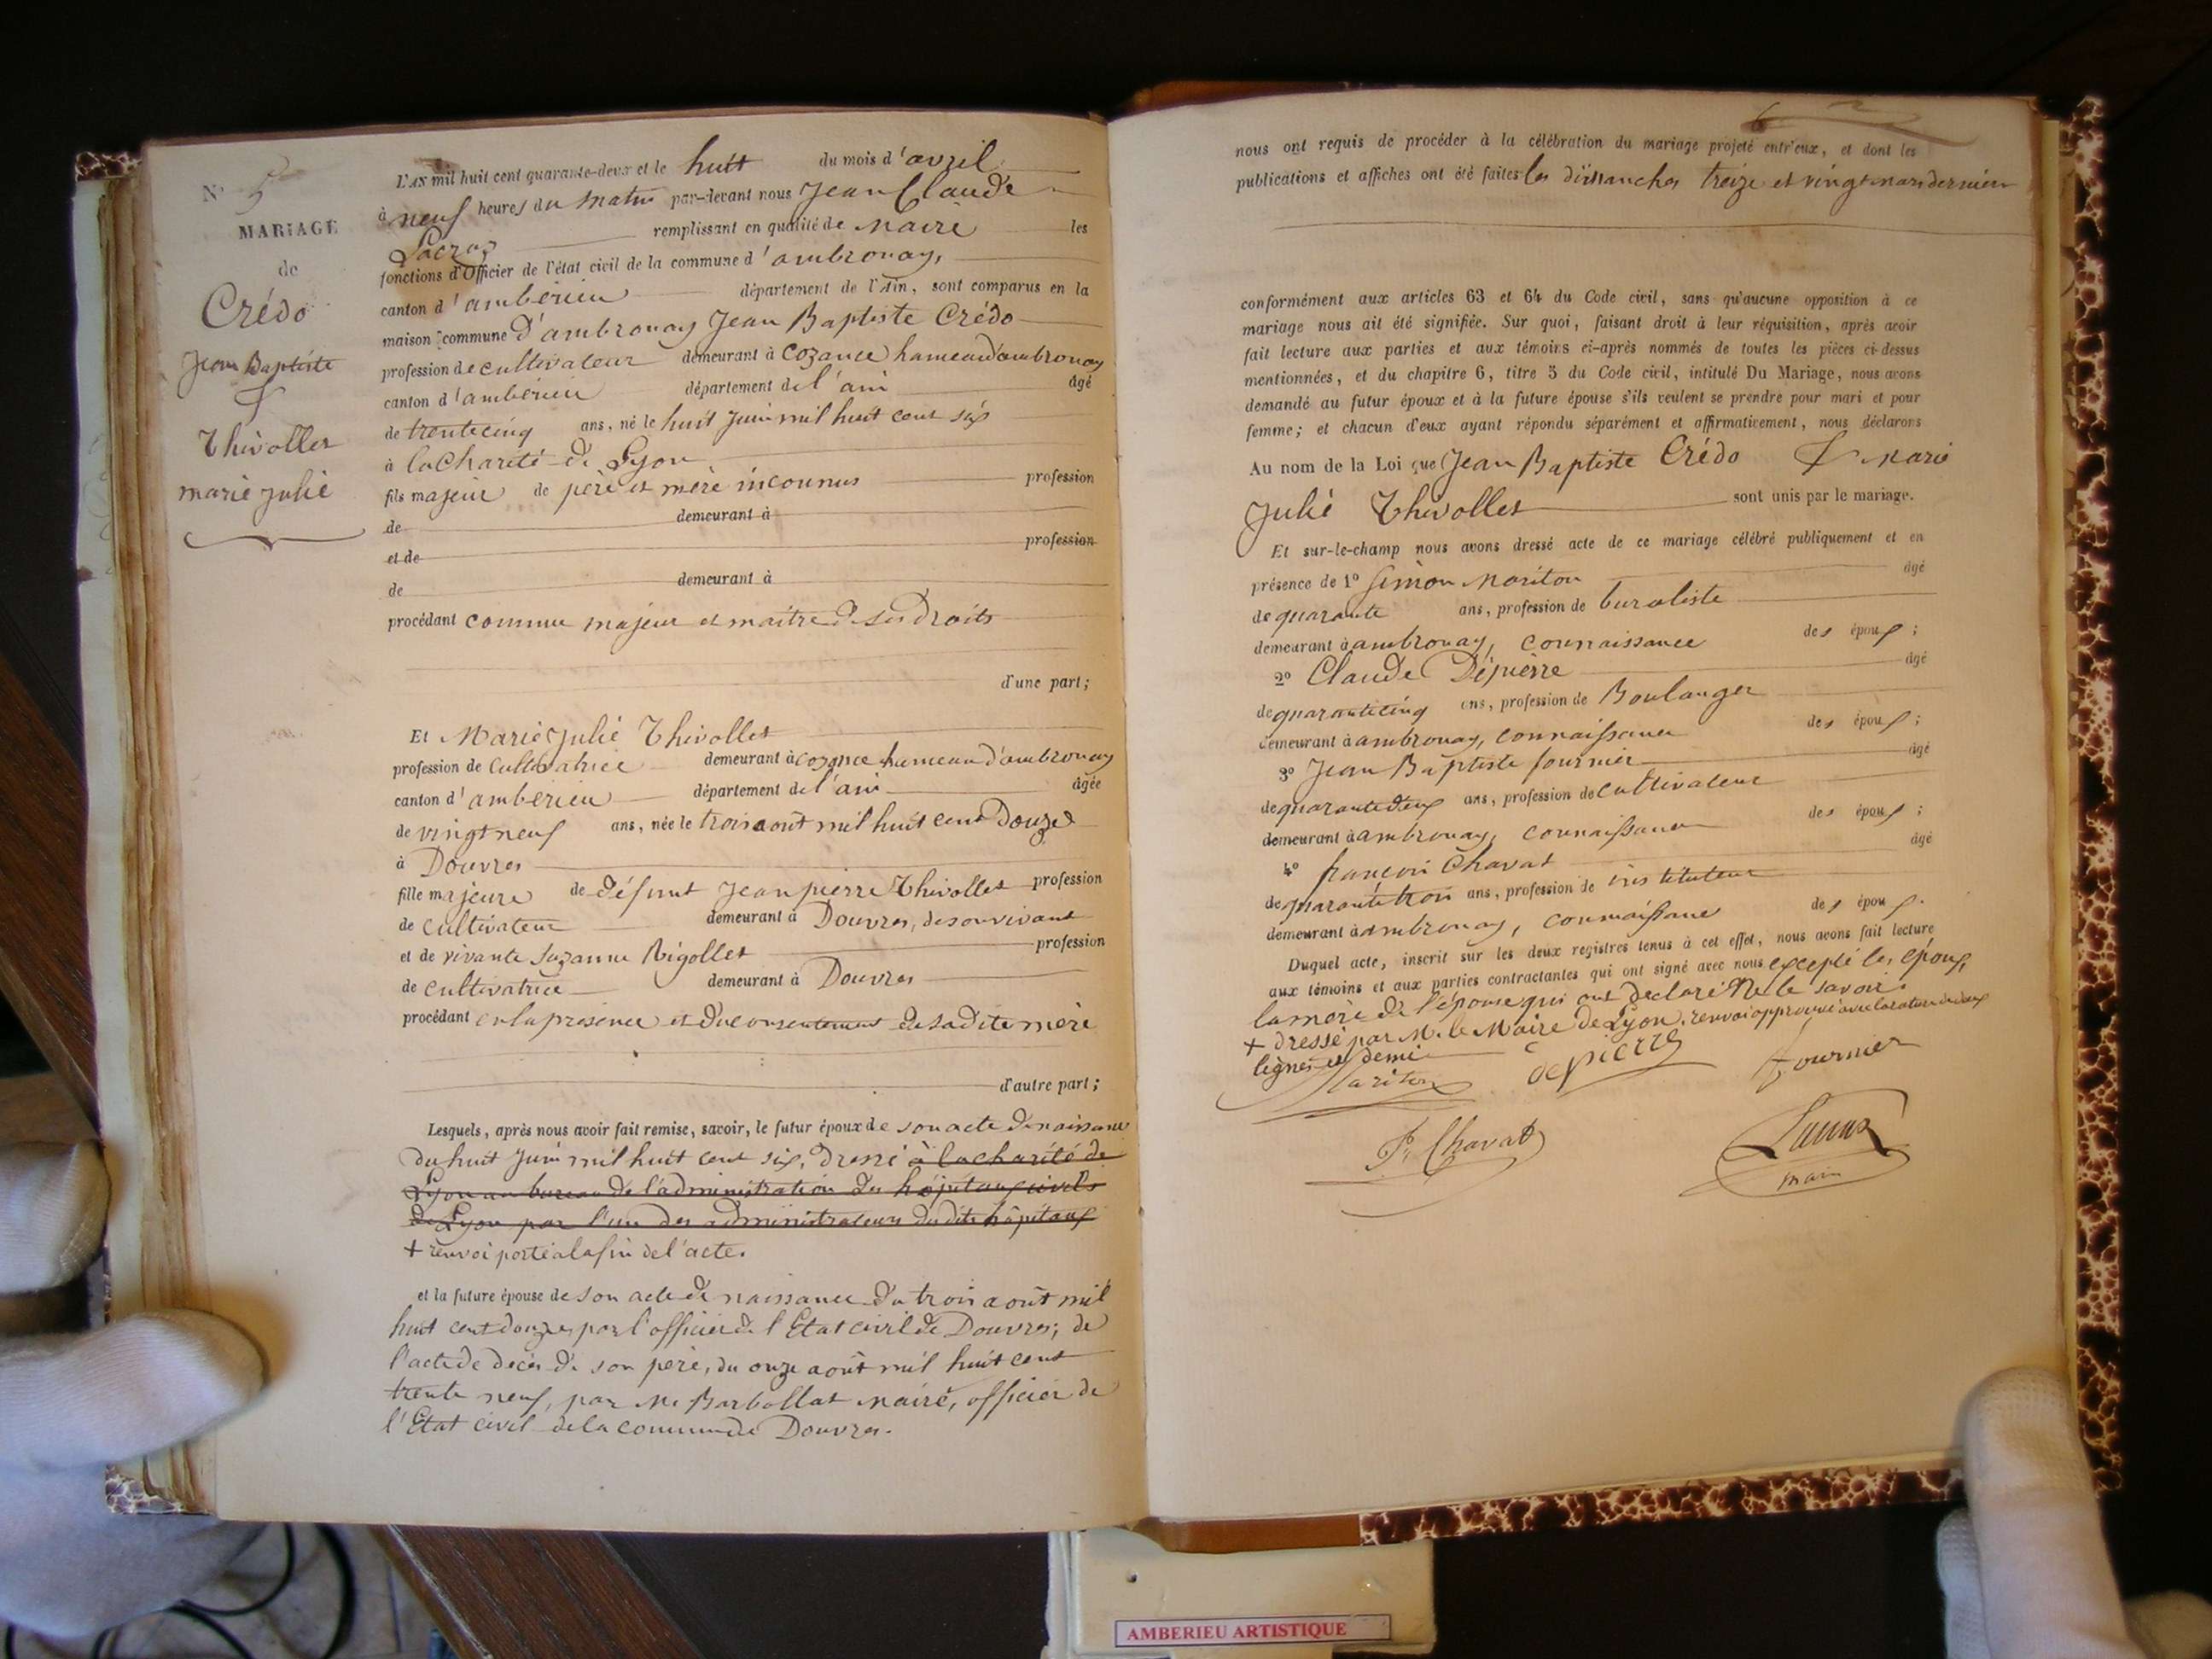 N° 5
MARIAGE
de
Crédo
Jean Baptiste
&
Thivollet
marie julie
L'AN mil huit cent quarante-deux et le huit du mois d'avril
à neuf heures du matin par-devant nous Jean Claude
remplissant en qualité de maire les
fonctions d'Officier de l'état civil de la commune d'ambronay,
canton d'ambérieu département de l'Ain, sont comparus en la
maison commune d'ambronay Jean Baptiste Crédo
profession de cultivateur demeurant à cozance hameau d'ambronay
canton d'ambérieu département de l'ain âgé
de trente cinq ans, né le huit juin mil huit cent six
à la Charité de Lyon
fils majeur de père et mère inconnus profession
de demeurant à
et de profession
de demeurant à
procédant comme majeur et maitre de ses droits
d'une part;
Et Marie Julie Thivollet
profession de cultivatrice demeurant à cozance hameau d'ambronay
canton d'ambérieu département de l'ain âgée
de vingt neuf ans, née le trois août mil huit cent douze
à Douvres
fille majeure de défunt Jean pierre Thivollet profession
de cultivateur demeurant à Douvres, de son vivant
et de vivante Suzanne Rigollet profession
de cultivatrice demeurant à Douvres
procédant en la présence et du consentement de sadite mère
d'autre part;
Lesquels, après nous avoir fait remise, savoir, le futur époux de son acte de naissance
du huit juin mil huit cent six, dressé à la charité de
Lyon au bureau de l'administration des hôpitaux civils
de Lyon par l'un des administrateurs desdits hôpitaux
+ renvoi porté à la fin de l'acte.
et la future épouse de son acte de naissance du trois août mil
huit cent douze, par l'officier de l'Etat civil de Douvres; de
l'acte de décès de son père, du onze août mil huit cent
trente neuf, par Mr Barbollat maire, officier de
l'Etat civil de la commune de Douvres.
6
nous ont requis de procéder à la célébration du mariage projeté entr'eux, et dont les
publications et affiches ont été faites les dimanches treize et vingt mars dernier
conformément aux articles 63 et 64 du Code civil, sans qu'aucune opposition à ce
mariage nous ait été signifiée. Sur quoi, faisant droit à leur réquisition, après avoir
fait lecture aux parties et aux témoins ci-après nommés de toutes les pièces ci-dessus
mentionnées, et du chapitre 6, titre 5 du Code civil, intitulé Du Mariage, nous avons
demandé au futur époux et à la future épouse s'ils veulent se prendre pour mari et pour
femme; et chacun d'eux ayant répondu séparément et affirmativement, nous déclarons
Au nom de la Loi que Jean Baptiste Crédo & Marie
Julie Thivollet sont unis par le mariage.
Et sur-le-champ nous avons dressé acte de ce mariage célébré publiquement et en
présence de 1° Simon Mariton âgé
de quarante ans, profession de buraliste
demeurant à ambronay, connaissance des époux;
2° Claude Dépierre âgé
de quarante cinq ans, profession de Boulanger
demeurant à ambronay, connaissance des époux;
3° Jean Baptiste fournier âgé
de quarante deux ans, profession de cultivateur
demeurant à ambronay, connaissance des époux;
4° françois Chavat âgé
de quarante trois ans, profession de instituteur
demeurant à ambronay, connaissance des époux.
Duquel acte, inscrit sur les deux registres tenus à cet effet, nous avons fait lecture
aux témoins et aux parties contractantes qui ont signé avec nous excepté les époux,
la mère de l'épouse qui ont déclaré ne le savoir.
+ dressé par M. le Maire de Lyon. renvoi approuvé avec la rature de deux
lignes et demi
Mariton depierre fournier
Fr Chavat
maire
AMBERIEU ARTISTIQUE